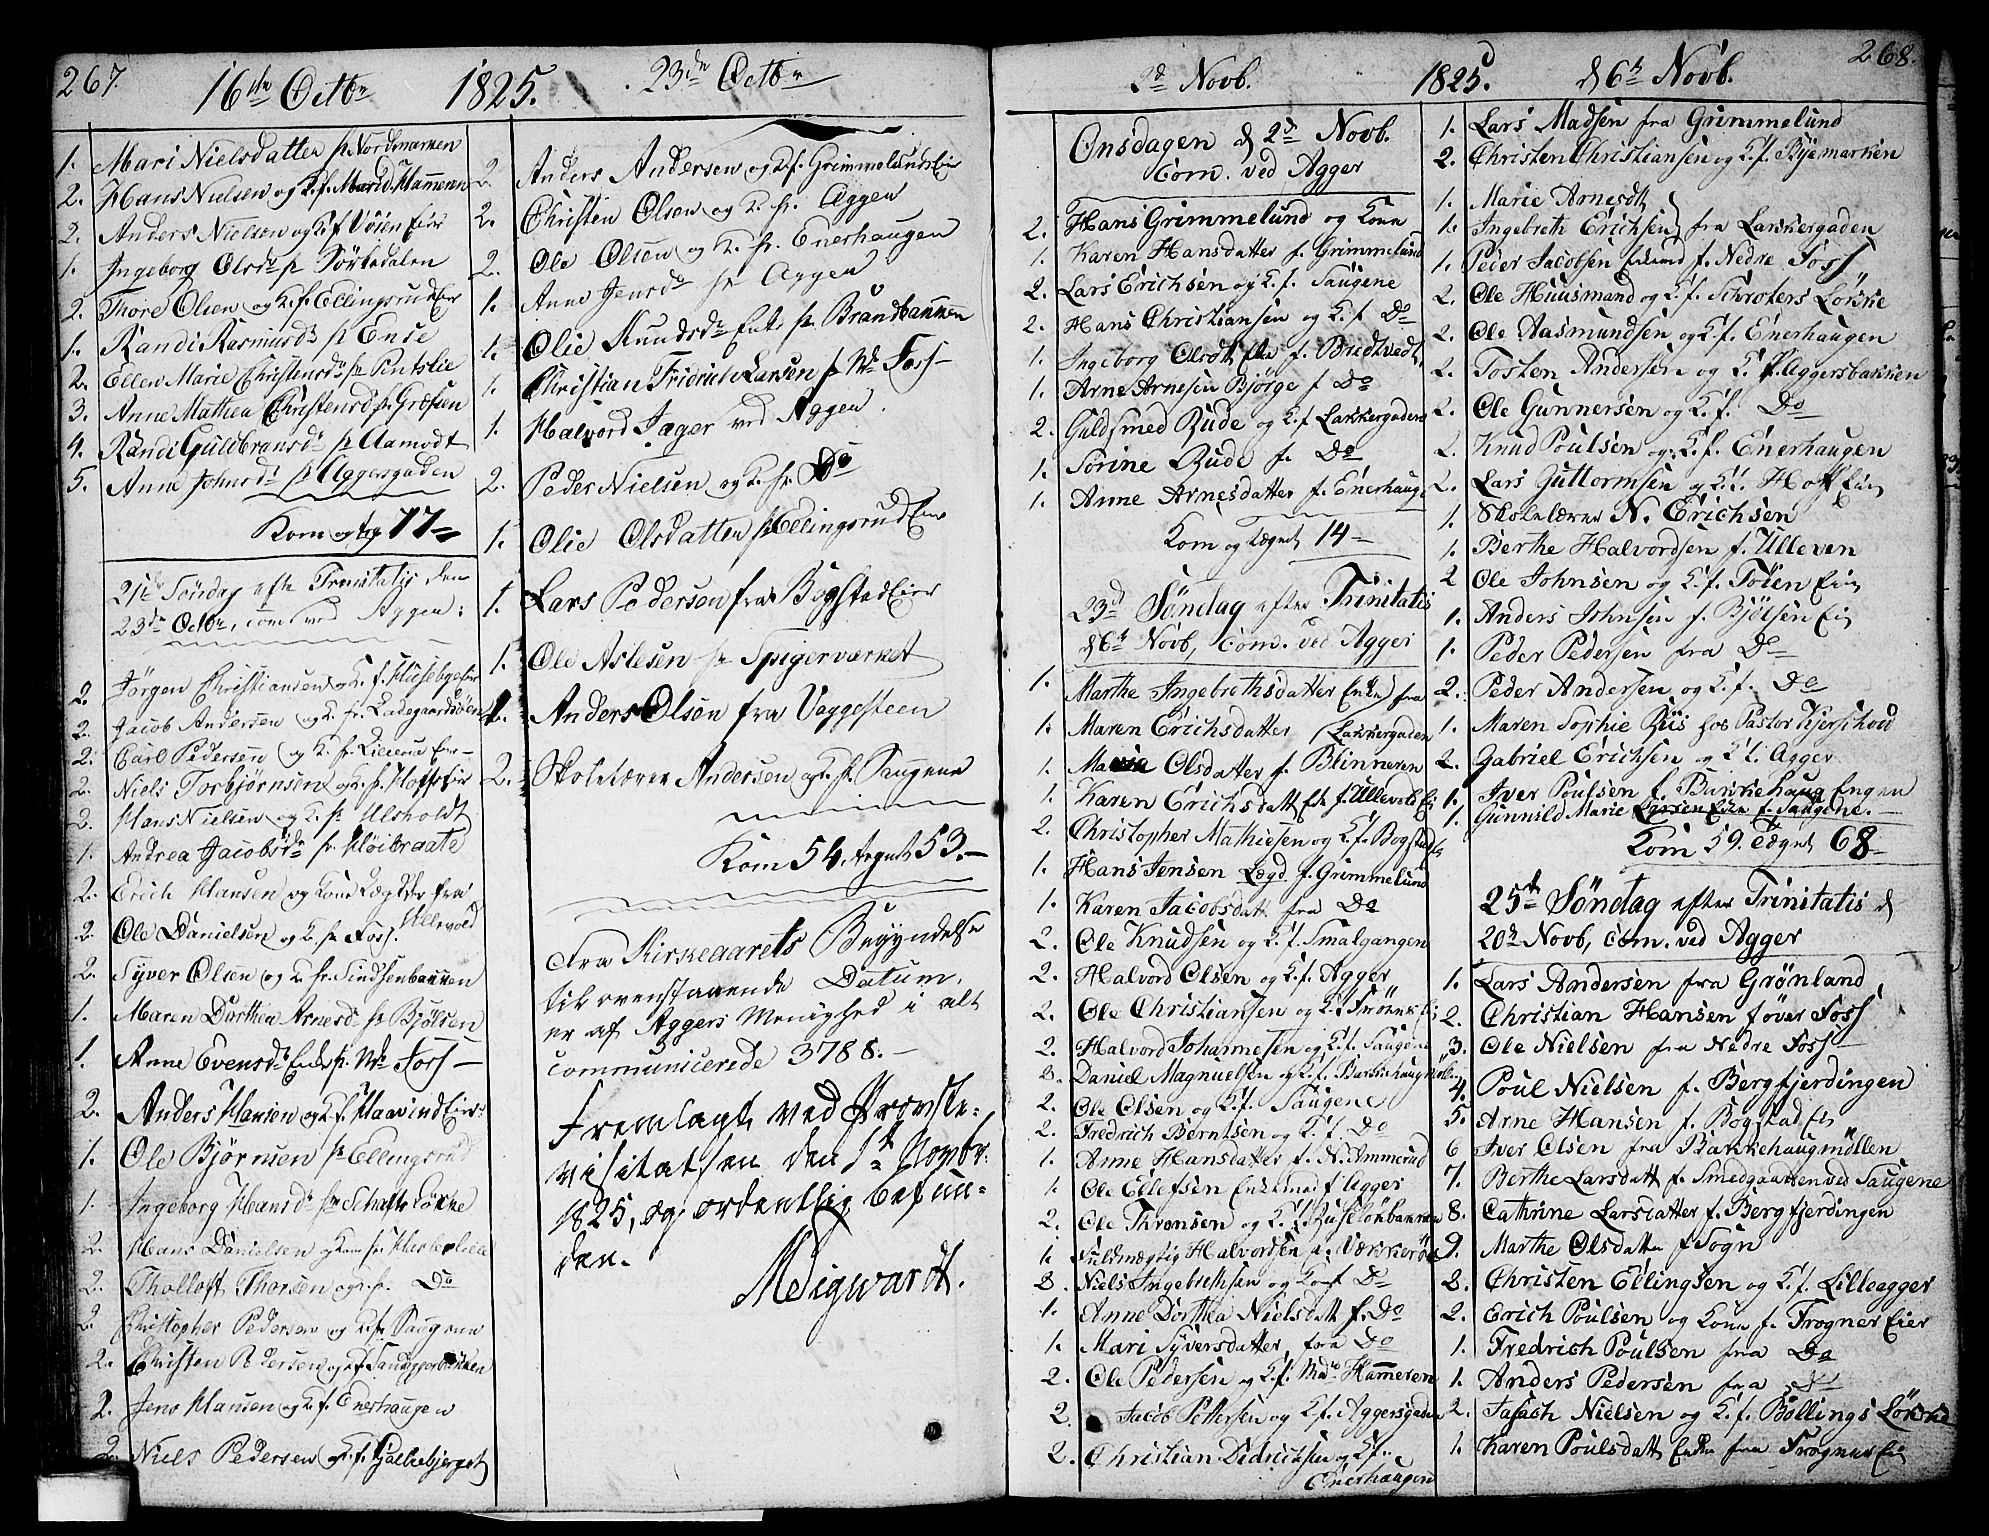 267.
16de Octbr 1825. 23de Octbr
1. Mari Nielsdatter fr Nordmarken
2. Hans Nielsen og K. f. Marid. Hammeren
2. Anders Nielsen og K f Vöien Eier
1. Ingeborg Olsdr fr Sörkedalen
2. Thore Olsen og K. f. Ellingsrud Eier
1. Randi Rasmusdr fr Ense
2. Ellen Marie Christensdr fr Pintslie
3. Anne Mathea Christensd fr. Græsien
4. Randi Guldbransdr fr Aamodt
5. Anne Johnsdr fr Aggersgaden
Kom og tg 77
21de Söndag efte Trinitatis den
23de Octbr, com. ved Aggen:
2. Jörgen Christiansen og K. f. Husebyeeier
2. Jacob Andersen og K. fr. Ladegaardsöen
2. Carl Pedersen og K. fr. Lilleoue Eier
2. Niels Torbjörnsen og K. fr. Hoff Eier
2. Hans Nielsen og K. fr Ulsholdt
1. Andrea Jacobsdr fr. Klöibraate
2. Erich Hansen og Kone Lægder fra Ullevold
2. Ole Danielsen og K. fr Foss.
2. Syver Olsen og K. fr. Sindsenbakken
1. Maren Dorthea Arnesdr fr Bjölsen
1. Anne Evensdr Enke fr. Ne Foss
2. Anders Hansen og K. f. Haavind Eier
1. Ole Björnsen fr Ellingsrud
1. Ingeborg Hansdr fr Schafts Løkke
2. Hans Danielsen og Kone fr. Histelille
2. Tholloff Thorsen og fr. Do
2. Christopher Pedersen og K. fr Saugene
2. Christen Pedersen og K. f. Sandaggerbakken
2. Jens Hansen og K. f. Enerhaugen
2. Niels Pedersen og K. f. Gallebjerget
2. Anders Andersen og K. f. Grimmelunds Eier
2. Christen Olsen og K. fr. Aggen
2. Ole Olsen og K. fr. Enerhaugen
1. Anne Jensdr fr Aggen
1. Olie Knudsdr Enke fr Brandbakken
1. Christian Fridrich Larsen fr Ne Foss
1. Halvord Jager ved Aggen.
2. Peder Nielsen og K. fr. Do
1. Olie Olsdatter fr Ellingsrud Eier
1. Lars Pedersen fra Bogstad Eier
1. Ole Aslesen fr Spigerværket
1. Anders Olsen fra Vaggesteen
2. Skolelærer Andersen og K. fr. Saugene
Kom 54. tegnet 53.
Fra Kirkeaarets Begyndelse
til ovenstaaende Datum,
er af Aggers Menighed i alt
communicerede 3788.
Fremlagt ved Provste-
visitatsen den 1te Novbr.
1825, og ordentlig befun-
den.
M Sigwardt.
268.
2d Novb. 1825. d 6te Novb.
Onsdagen d 2d Novb.
Com. ved Agger
2. Hans Grimmelund og Kone
1. Karen Hansdatter f. Grimmelund
2. Lars Erichsen og K. f. Saugene
2. Hans Christiansen og K. f. Do
1. Ingeborg Olsdtt f. Bredtvedt
1. Arne Arnesen Bjørge f Do
2. Guldsmed Rude og K. f Lakkergaden
1. Sørine Rude f. Do
1. Anne Arnesdatter f. Enerhaug
Kom og tegnet 14
23d Søndag efter Trinitatis
d 6te Novb, Com. ved Agger
1. Marthe Ingebrethsdatter Enke fra
1. Maren Erichsdatter Lakkergaden
1. Marie Olsdatter f. Blinneren
1. Karen Erichsdatt Eke f. Ullevold Ei
2. Christopher Mathiesen og K. f. Bogstad
1. Hans Jensen Lægd f. Grimmelund
1. Karen Jacobsdatt fra Do
2. Ole Knudsen og K. f. Smalgangen
2. Halvord Olsen og K. f. Agger
2. Ole Christiansen og K. f Frönen Ei
2. Halvord Johannesen og K. f. Saugene
2. Daniel Magnuelsen og K. f. Bakkehaugmöl
2. Ole Olsen og K. f. Saugene
2. Fredrich Berntsen og K. f. Do
1. Anne Hansdatter f. N. Ammerud
1. Ole Ellefsen Enkemd f Agger
2. Ole Thronsen og K. f. Ruseløkbakken
1. Fuldmægtig Halvordsen f. Vækkerøe
2. Niels Ingebrethsen og Ko f. Do
1. Anne Dorthea Nielsdatt f. Do
1. Mari Syversdatter, fra Do
2. Ole Pedersen og K. f. Mad Hammeren
2. Jacob Pettersen og K. f. Aggersgaden
2. Christian Didrichsen og K f..
Enerhaugen
1. Lars Madsen fra Grimmelund
2. Christen Christiansen og K. f. Byemarken
1. Marie Arnesdtt
1. Ingebreth Erichsen fra Lakkergaden
1. Peder Jacobsen Enkemd f. Nedre Foss
2. Ole Huusmand og K. f. Schrøters Løkke
2. Ole Aasmundsen og K. f. Enerhaugen
2. Tosten Andersen og K. f. Aggersbakken
2. Ole Gunnersen og K. f. Do
2. Knud Poulsen og K. f. Enerhaugen
2. Lars Guttormsen og K. f. Hoff Ei
1. Skolelærer N. Erichsen
1. Berthe Halvordsen f. Ulleven
2 Ole Johnsen og K. f. Töien Ei
1. Anders Johnsen f. Bjölsen Ei
1. Peder Pedersen fra Do
2. Peder Andersen og K. f. Do
1. Maren Sophie Riis hos Pastor Kjerschow
2. Gabriel Erichsen og K f. Agger
1. Iver Poulsen f. Bakkehaug Engen
1. Gunnild Marie Larsen Eke f. Saugene.
Kom 59. tegnet 68
25de Søndag efter Trinitatis d
20de Novb, com. ved Agger
1. Lars Andersen fra Grønland
2. Christian Hansen f øver Foss
3. Ole Nielsen fra Nedre Foss
4. Poul Nielsen f. Bergfjerdingen
5. Arne Hansen f. Bogstad Ei
6 Iver Olsen fra Bakkehaugmöllen
7. Berthe Larsdatt f. Smedgaarden ved Saugene
8. Cathrine Larsdatter f. Bergfjerdingen
9. Marthe Olsdatter f Sogn
2. Christen Ellingsen og K. f. Lilleagger
2. Erich Poulsen og Kone f. Frogner Eier
1. Fredrich Poulsen fra Do
1. Anders Pedersen fra Do
2. Jasash Nielsen og K. f. Bollings Løkke
1. Karen Poulsdatt Enke fra Frogner Ei